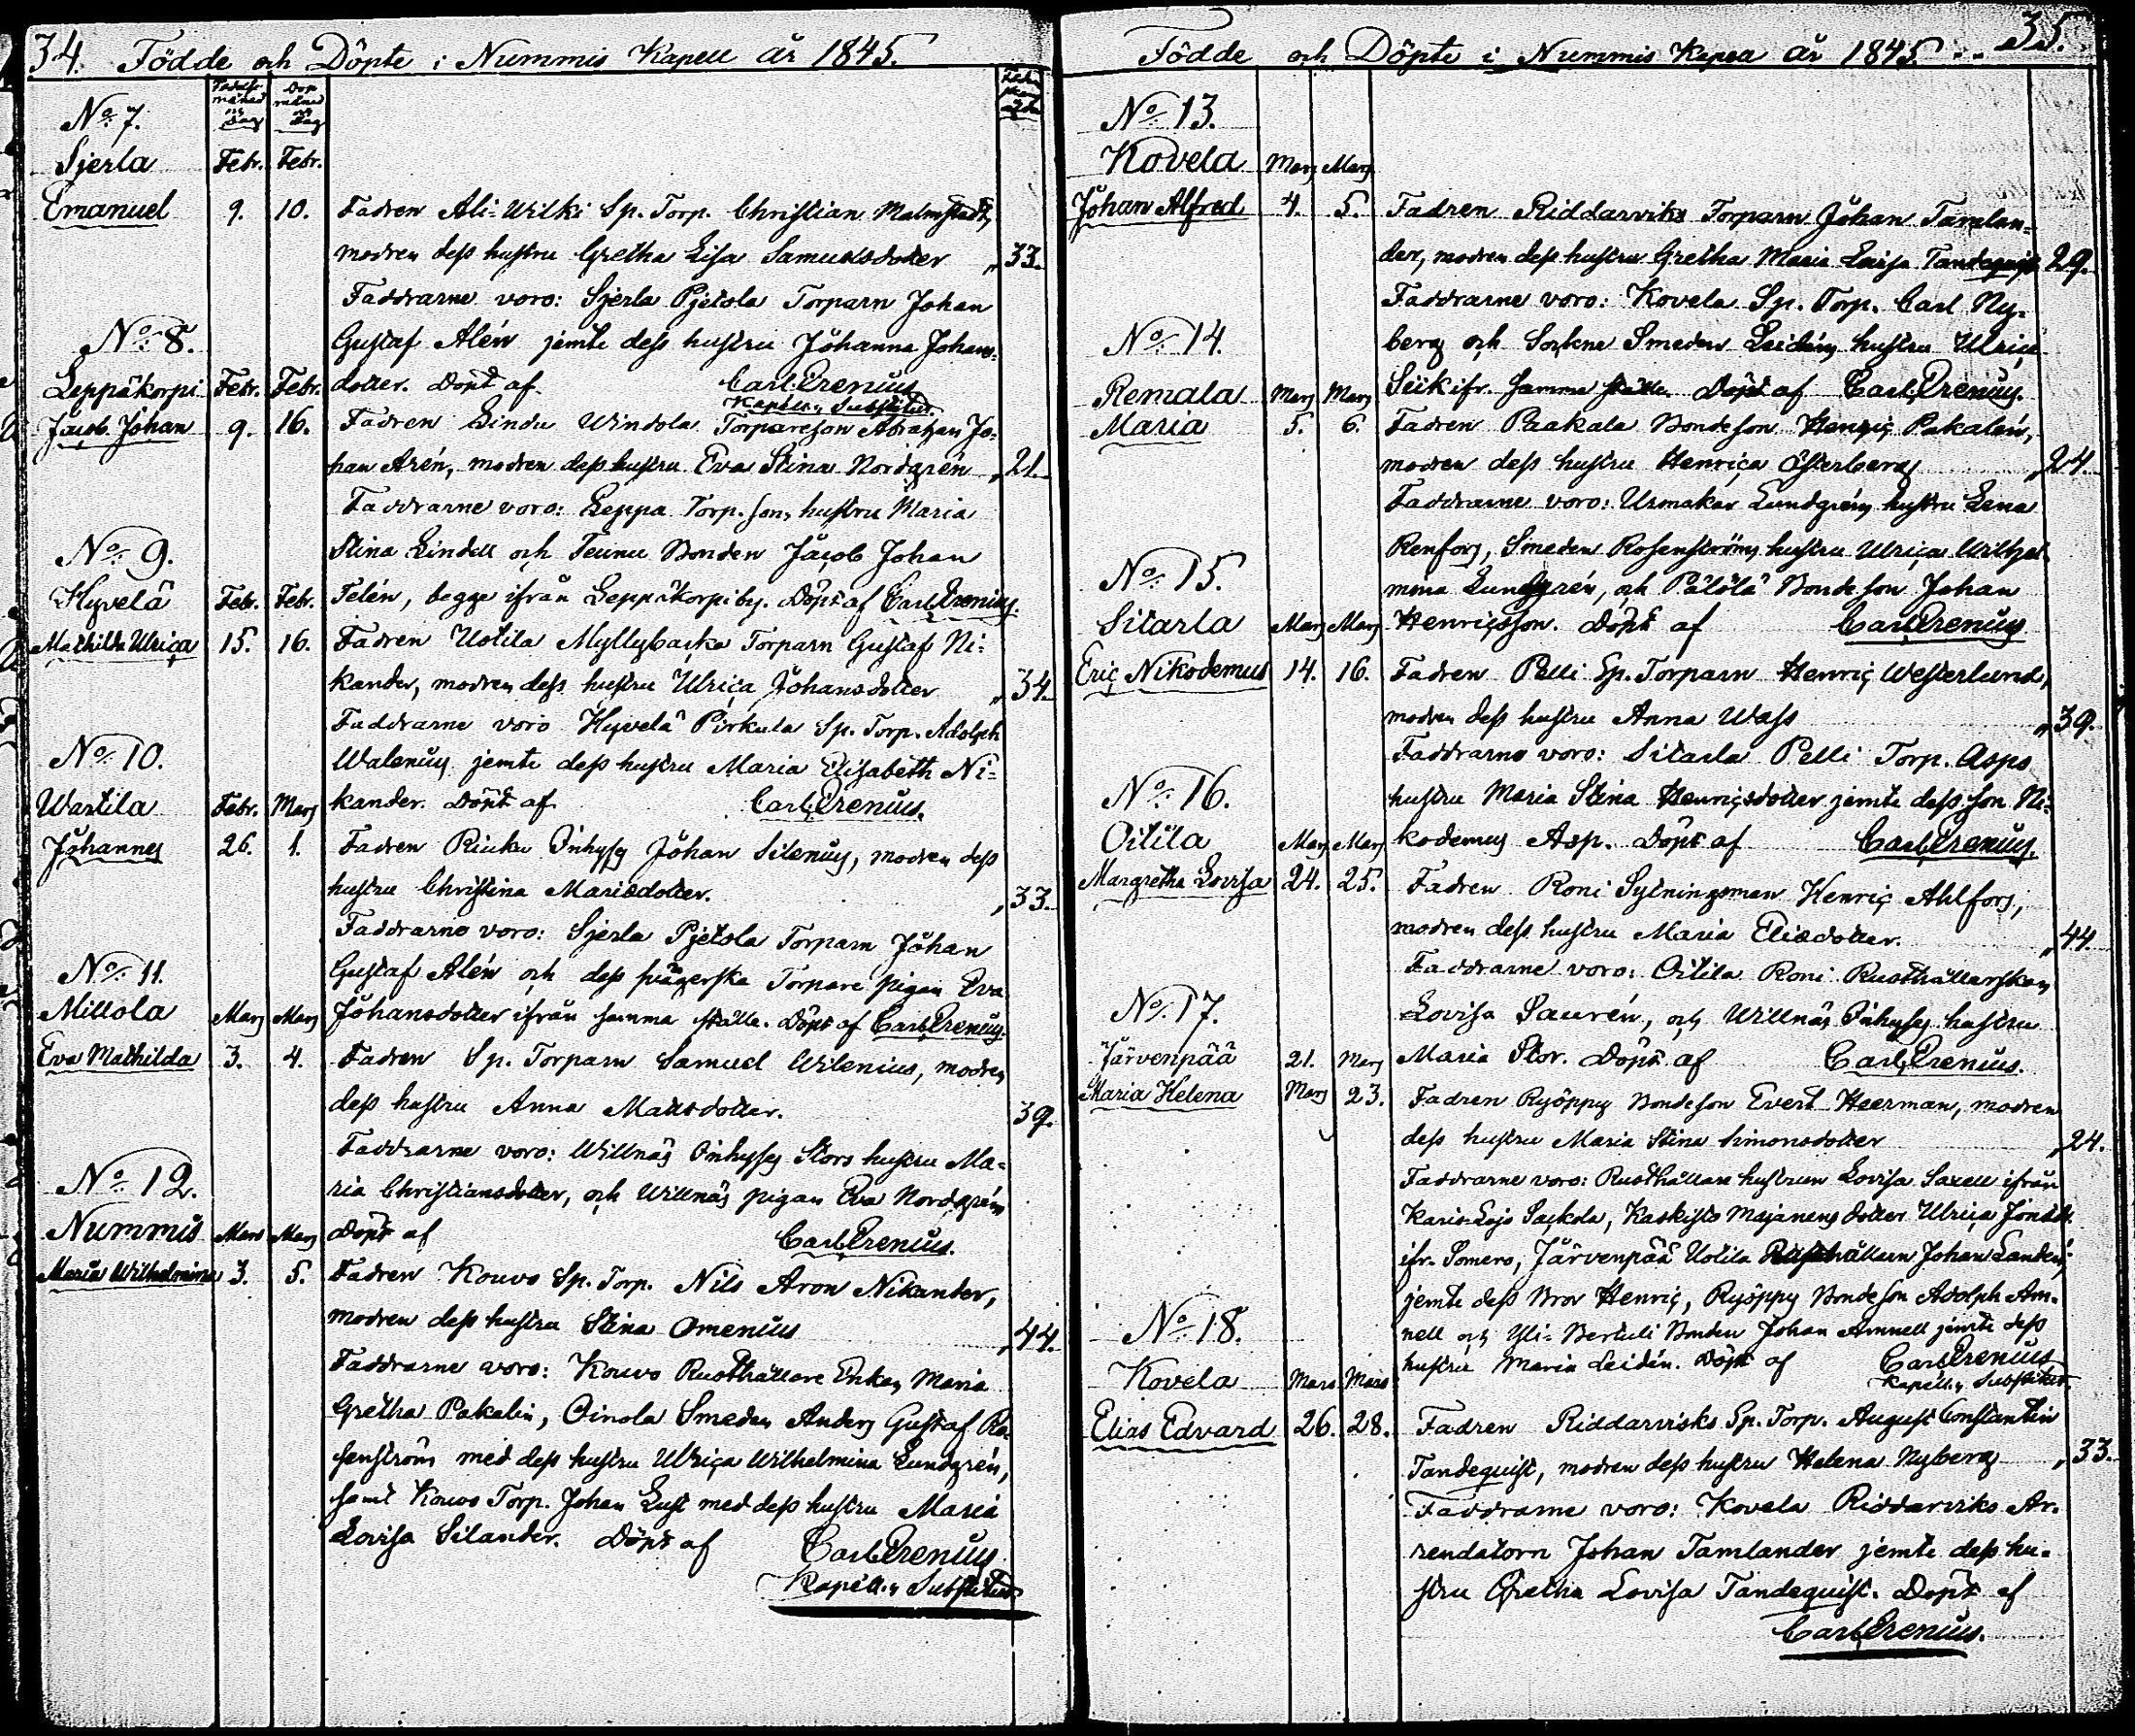 34. Födde och Döpte i Nummis Kapell år 1845.
Födelse månad och dag
Dop månad och dag
No. 7.
Sjerla Febr. Febr.
Emanuel 9. 10. Fadren Ali-Wilki Sp. Torp. Christian Malmstedt,
modren dess hustru Gretha Lisa Samuelsdotter „33.
Faddrarne voro: Sjerla Pjetola Torparn Johan
No. 8.
Gustaf Alén jemte dess hustru Johanna Johans-
Leppäkorpi Febr. Febr. dotter. Döpt af Carl Prenius
Kapell.s Substitut.
Jacob Johan 9. 16. Fadren Lindu Windola Torpareson Abraham Jo-
han Arén, modren dess hustru Eva Stina Nordgrén „21.
Faddrarne voro: Leppä Torp. sons hustru Maria
No. 9.
Stina Lindell och Teunu Bonden Jacob Johan
Hyvelä Febr. Febr. Felén, begge ifrån Leppäkorpi by. Döpt af Carl Prenius.
Mathilda Ulrica 15. 16. Fadren Uotila Myllybacka Torparn Gustaf Ni-
kander, modren dess hustru Ulrica Johansdotter „34.
Faddrarne voro Hyvelä Pirkula Sp. Torp. Adolph
No. 10.
Walenius jemte dess hustru Maria Elisabeth Ni-
Wartila Febr. Mars kander. Döpt af Carl Prenius.
Johannes 26. 1. Fadren Rinku Inhyses Johan Silenius, modren dess
hustru Christina Mariædotter. „33.
Faddrarne voro: Sjerla Pjetola Torparn Johan
No. 11.
Gustaf Alén och dess Torpare pigan Eva
Millola Mars Mars Johansdotter ifrån samma ställe. Döpt af Carl Prenius.
Eva Mathilda 3. 4. Fadren Sp. Torparn Samuel Wilenius, modren
dess hustru Anna Mattsdotter. 39.
Faddrarne voro: Willnäs Inhyses Stors hustru Ma-
No. 12.
ria Christiansdotter, och Willnäs pigan Eva Nordgrén
Nummis Mars Mars Döpt af Carl Prenius.
Maria Wilhelmina 3. 5. Fadren Kouvo Sp. Torp. Nils Aron Nikander,
modren dess hustru Stina Omenius „44.
Faddrarne voro: Kouvo Rusthållare Enkan Maria
Gretha Pakalin, Oinola Smeden Anders Gustaf Ro-
senström med dess hustru Ulrica Wilhelmina Lundgrén,
samt Kouvo Torp. Johan Lust med dess hustru Maria
Lovisa Silander. Döpt af Carl Prenius
Kapell.s Substitut
Födde och Döpte i Nummis Kapell år 1845 35.
No. 13.
Kovela Mars Mars
Johan Alfred 4. 5. Fadren Riddarviks Torparn Johan Tamlan-
der, modren dess hustru Gretha Maria Lovisa Tandequist 29.
Faddrarne voro: Kovela Sp. Torp. Carl Ny-
No. 14.
berg och Sockne Smeden hustru Ulrica
Remala Mars Mars samma ställe Döpt af Carl Prenius.
Maria 5. 6. Fadren Paakala Bondeson Henric Pakalén,
modren dess hustru Henrica Österberg „24.
Faddrarne voro: Urmakar Lundgréns hustru Lena
Renfors, Smeden Rosenströms hustru Ulrica Wilhel-
No. 15.
mina Lundgrén, och Pälölä Bondeson Johan
Sitarla Mars Mars Henricsson. Döpt af Carl Prenius
Eric Nikodemus 14. 16. Fadren Pelli Sp. Torparn Henric Westerlund,
modren dess hustru Anna Wass „39.
Faddrarne voro: Sitarla Pelli Torp. Asps
No. 16.
hustru Maria Stina Henricsdotter jemte dess son Ni-
Oitila Mars Mars kodemus Asp. Döpt af Carl Prenius.
Margretha Lovisa 24. 25. Fadren Roni Sytningsman Henric Ahlfors,
modren dess hustru Maria Eliædotter. „44.
Faddrarne voro: Oitila Roni Rusthållarskan
No. 17.
Lovisa Saurén, och Willnäs Inhyses hustru
Järvenpää 21. Mars Maria Stor. Döpt af Carl Prenius.
Maria Helena Mars 23. Fadren Ryöppy Bondeson Evert Heerman, modren
dess hustru Maria Stina Simonsdotter „24.
Faddrarne voro: Rusthållare hustrun Lovisa Saxell ifrån
Karis-Lojo Sackola, Kaskisto Majanens dotter Ulrica
ifr. Somero, Järvenpää Uotila Rusthållaren Johan Landén,
jemte dess Bror Henric, Ryöppy Bondeson Adolph Am-
No. 18.
nell och Yli-Bertuli Bonden Johan Amnell jemte dess
hustru Maria Leidén. Döpt af Carl Prenius
Kapell.s Substitut.
Kovela Mars Mars
Elias Edvard 26. 28. Fadren Riddarviks Sp. Torp. August Constantin
Tandequist, modren dess hustru Helena Nyberg „33.
Faddrarne voro: Kovela Riddarviks Ar-
rendatorn Johan Tamlander jemte dess hu-
stru Gretha Lovisa Tandequist. Döpt af
Carl Prenius.